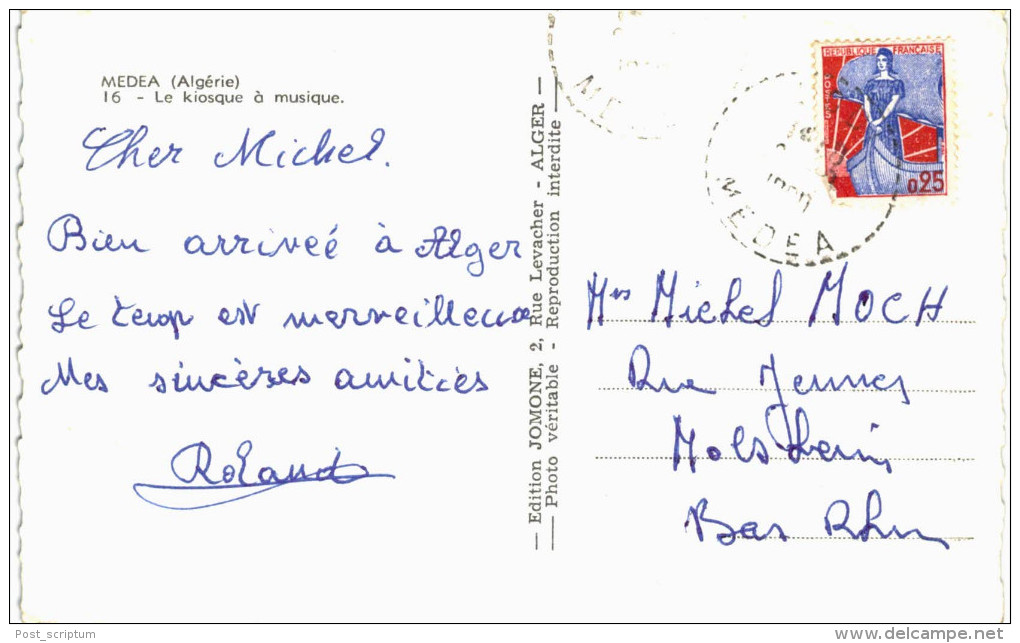 MEDEA (Algérie)
16 - Le kiosque à musique.
Cher Michel.
Bien arriveé à Alger
Le temp est merveilleux
Mes sincères amitiés
Roland
— Edition JOMONE, 2, Rue Levacher - ALGER —
— Photo véritable - Reproduction interdite —
REPUBLIQUE FRANÇAISE
POSTES
0,25
MEDEA
Mrs Michel MOCH
Rue
Molsheim
Bas Rhin
Post_scriptum
delcampe.net